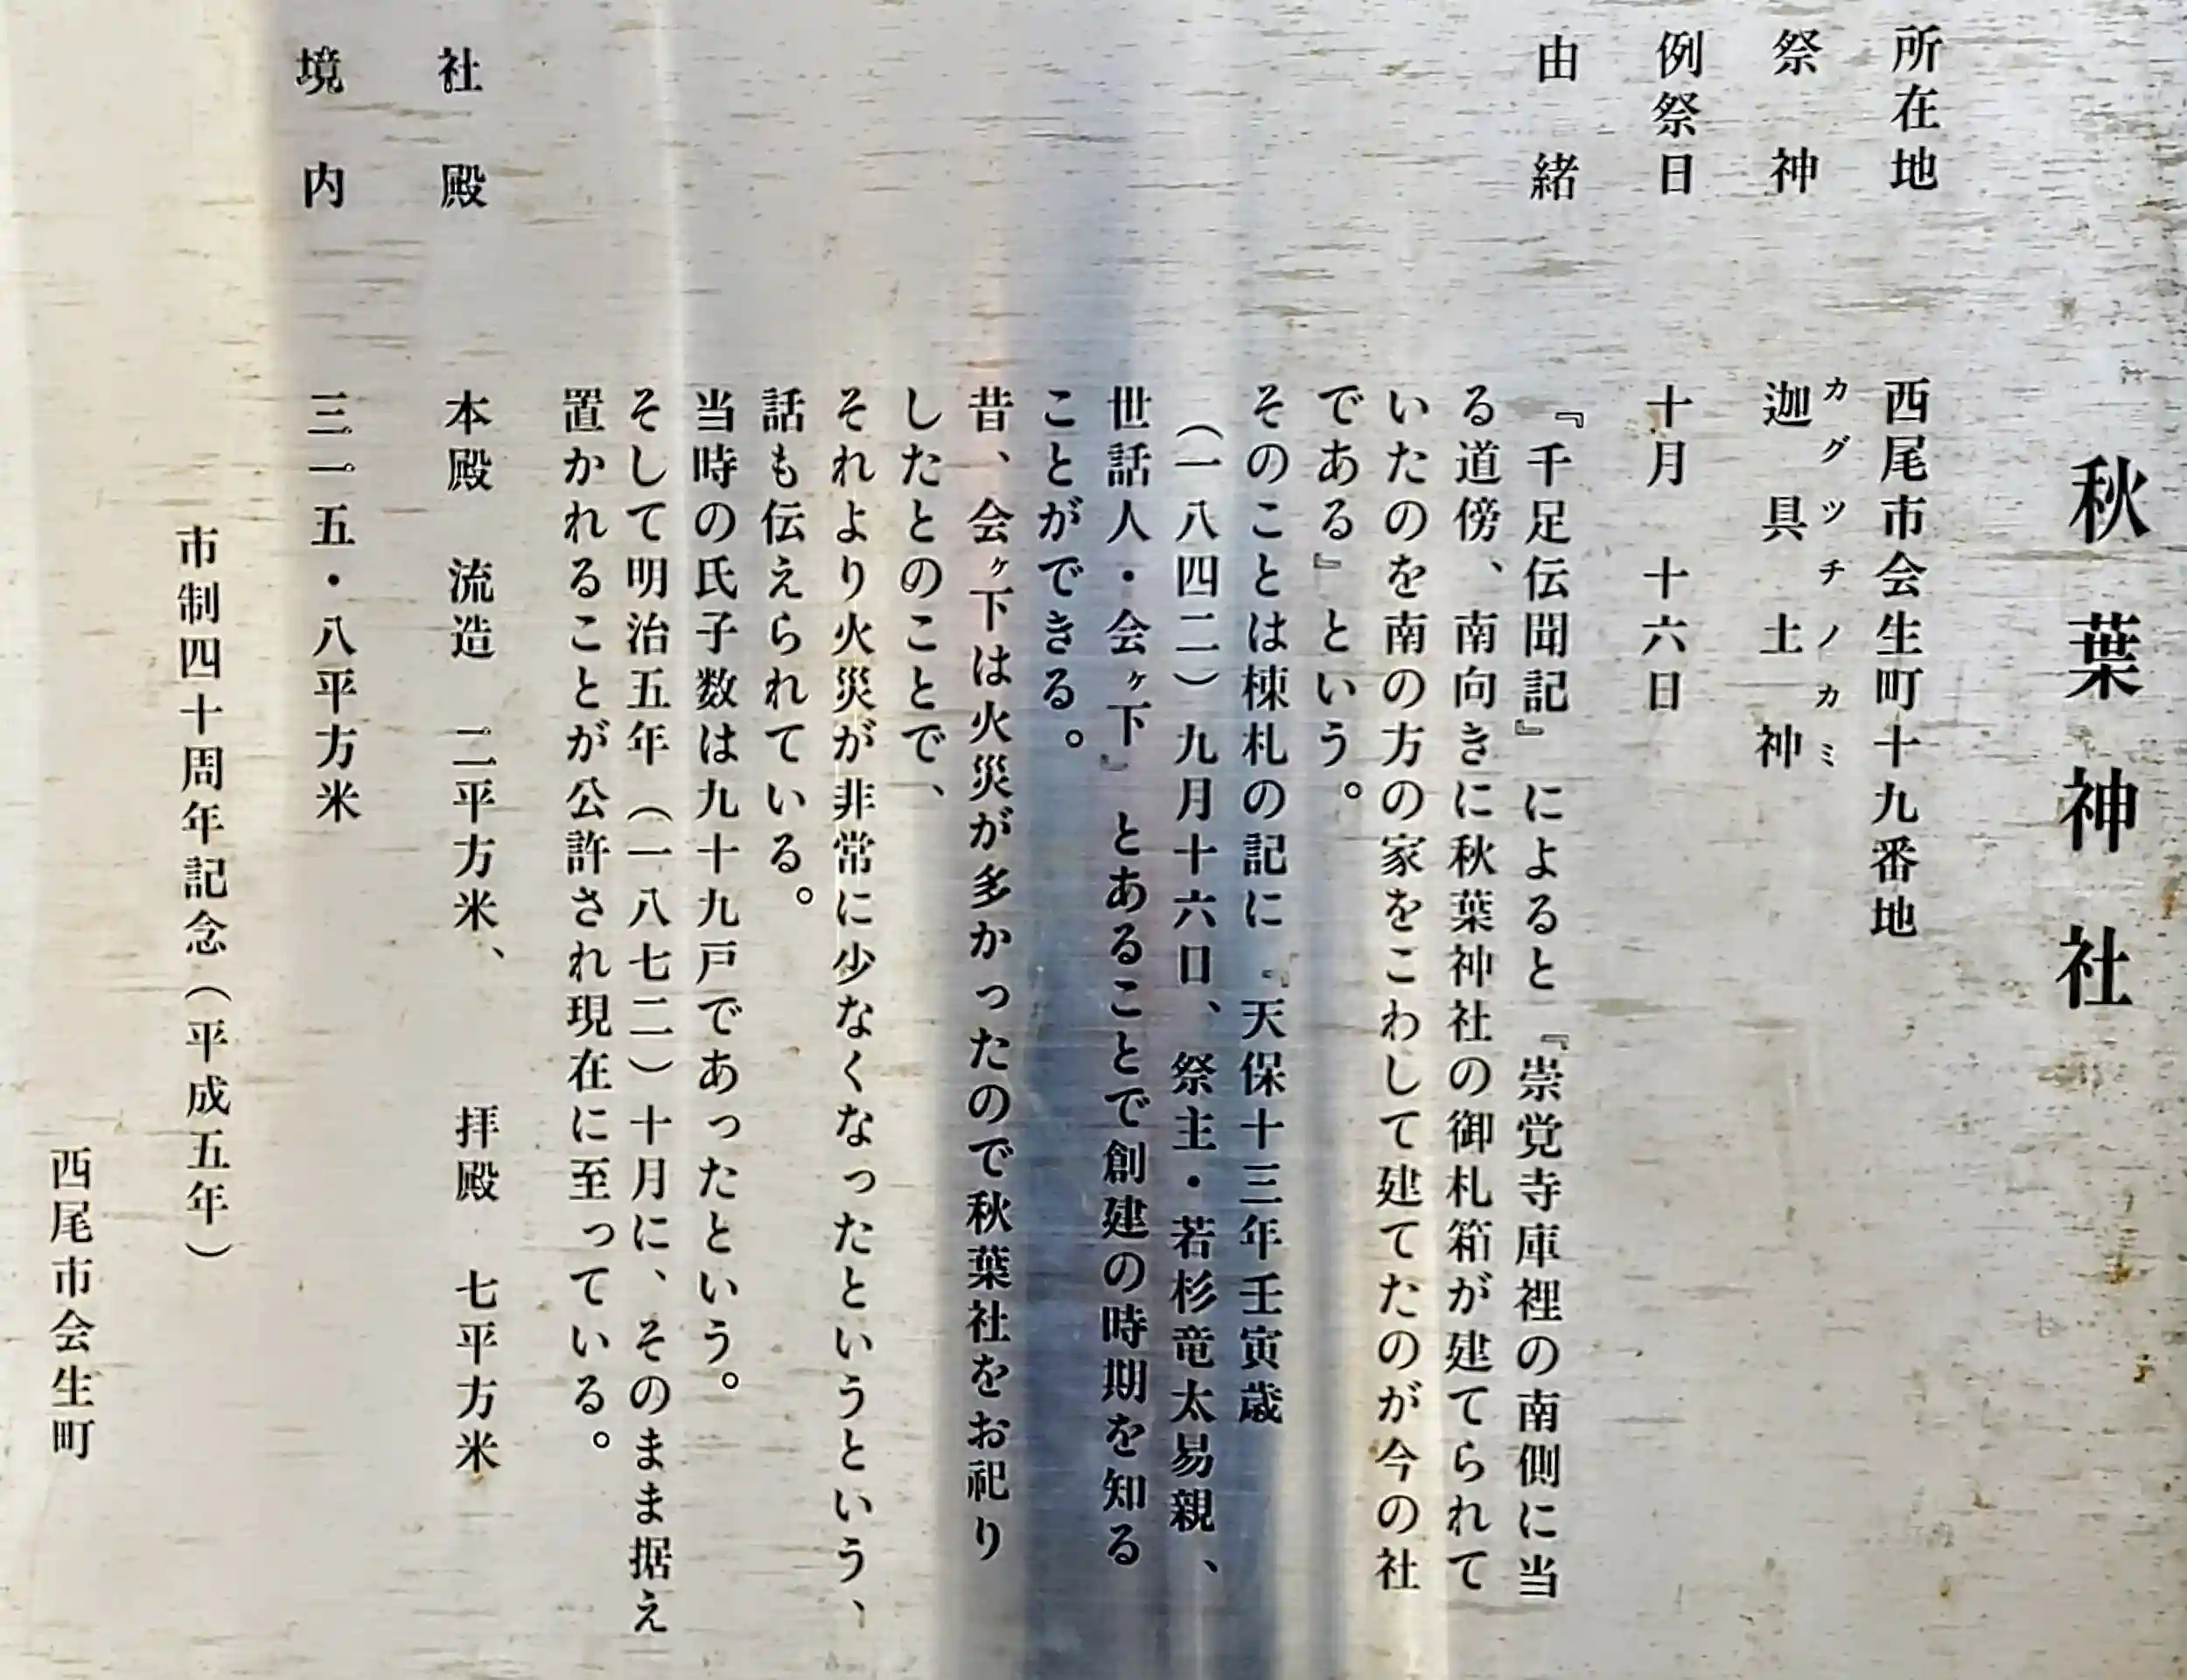 秋葉神社
所在地 西尾市会生町十九番地
カグツチノカミ
祭神 迦具土神
例祭日 十月十六日
由緒 『千足伝聞記』によると『崇覚寺庫裡の南側に当
る道傍、南向きに秋葉神社の御札箱が建てられて
いたのを南の方の家をこわして建てたのが今の社
である』という。
そのことは棟札の記に『天保十三年壬寅歳
(一八四二)九月十六日、祭主・若杉竜太易親、
世話人・会ヶ下』とあることで創建の時期を知る
ことができる。
昔、会ヶ下は火災が多かったので秋葉社をお祀り
したとのことで、
それより火災が非常に少なくなったというという、
話も伝えられている。
当時の氏子数は九十九戸であったという。
そして明治五年(一八七二)十月に、そのまま据え
置かれることが公許され現在に至っている。
社殿 本殿 流造 二平方米、 拝殿 七平方米
境内 三一五・八平方米
市制四十周年記念(平成五年)
西尾市会生町